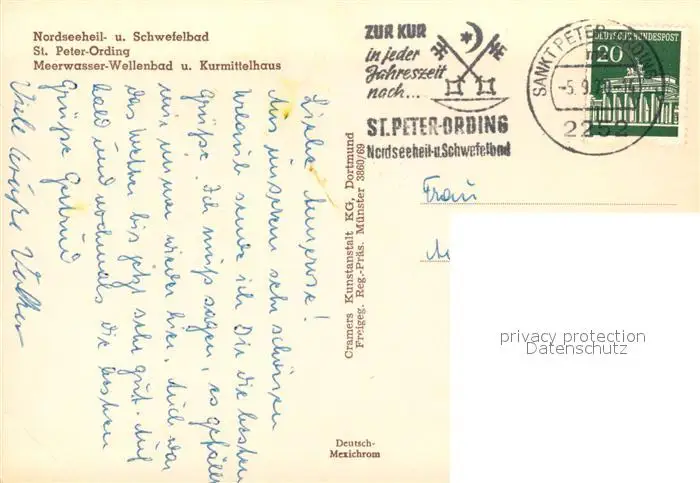 Nordseeheil- u. Schwefelbad
St. Peter-Ording
Meerwasser-Wellenbad u. Kurmittelhaus
Liebe Annerose!
Aus unserem sehr schönen
Urlaub sende ich Dir die besten
Grüße. Ich muß sagen, es gefällt
mir immer wieder hier. Auch war
das Wetter bis jetzt sehr gut. Auf
bald und nochmals die besten
Grüße Gertrud
Viele Grüße
Cramers Kunstanstalt KG, Dortmund
Freigeg. Reg.-Präs. Münster 3860/69
Deutsch-
Mexichrom
ZUR KUR
in jeder
Jahreszeit
nach...
ST. PETER-ORDING
Nordseeheil-u.Schwefelbad
SANKT PETER-ORDING
-5.9.70
2252
DEUTSCHE BUNDESPOST
20
Frau
privacy protection
Datenschutz